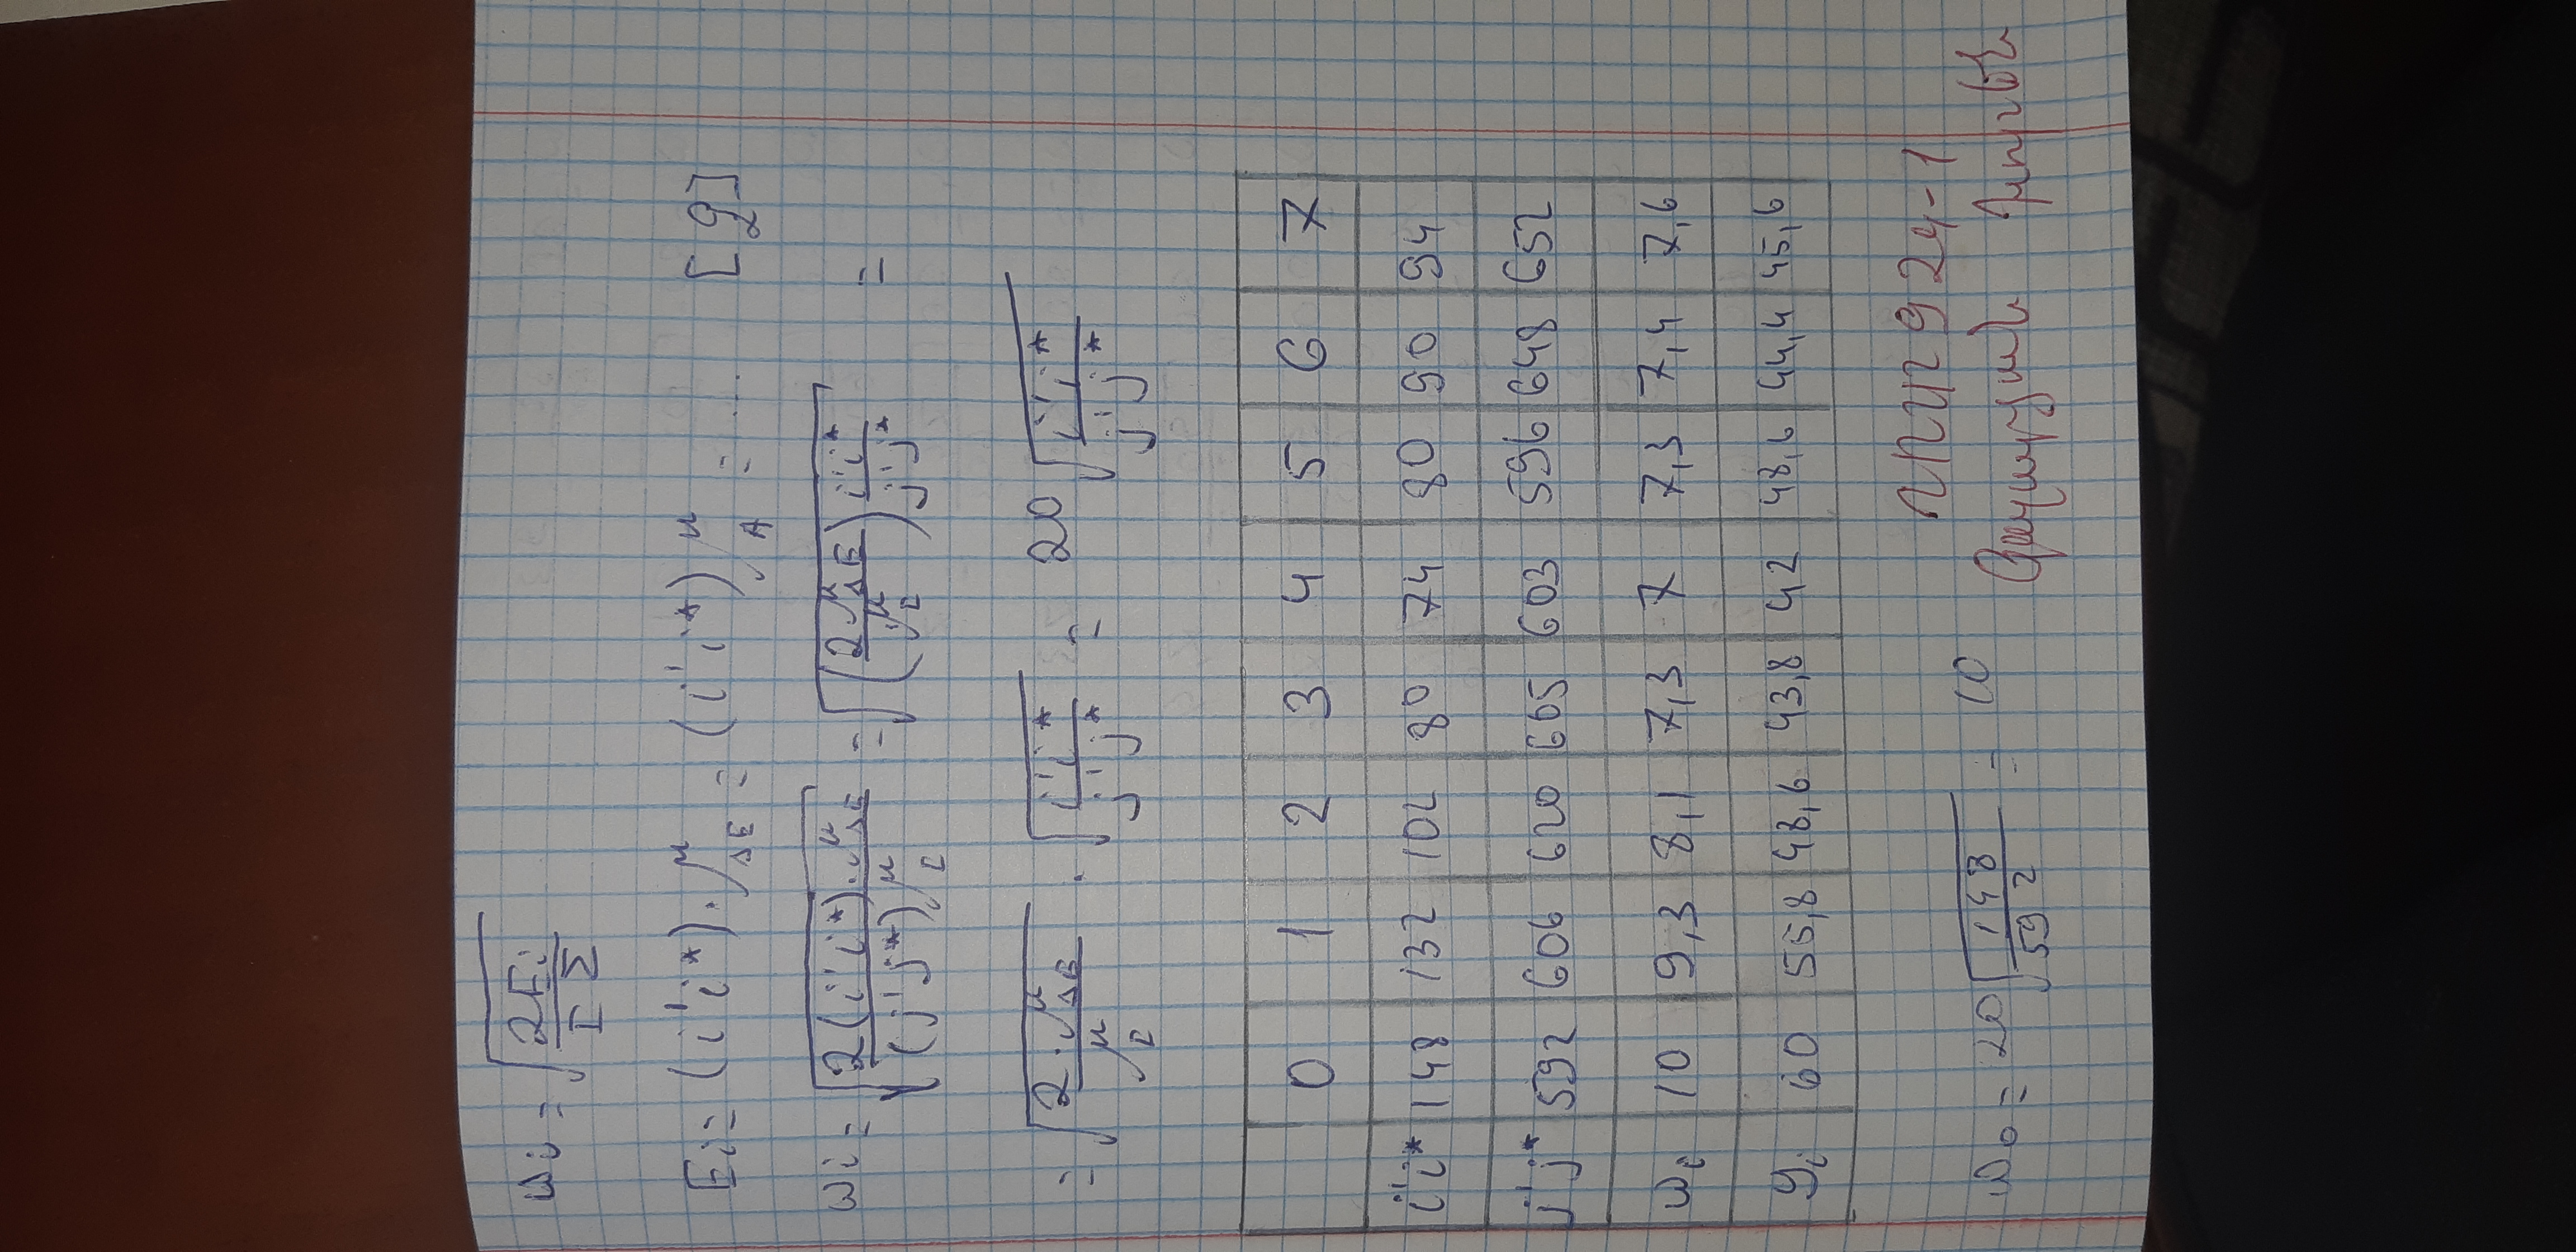 ωi = √(2Ei / IΣ)
Ei = (i'i*) · μΔE = (i'i*) μA = ... [Ջ]
ωi = √(2(i'i*) · μΔE / (j'j*) μI) = √((2 μΔE / μI) i'i* / j'j*) =
= √(2 · μΔE / μI) · √(i'i* / j'j*) = 20 √(i'i* / j'j*)
0 1 2 3 4 5 6 7
i'i* 148 132 102 80 74 80 90 94
j'j* 592 606 620 605 603 596 648 652
ωi 10 9,3 8,1 7,3 7 7,3 7,4 7,6
yi 60 55,8 48,6 43,8 42 48,6 44,4 45,6
924-1
ω0 = 20 √(148 / 592) = 10